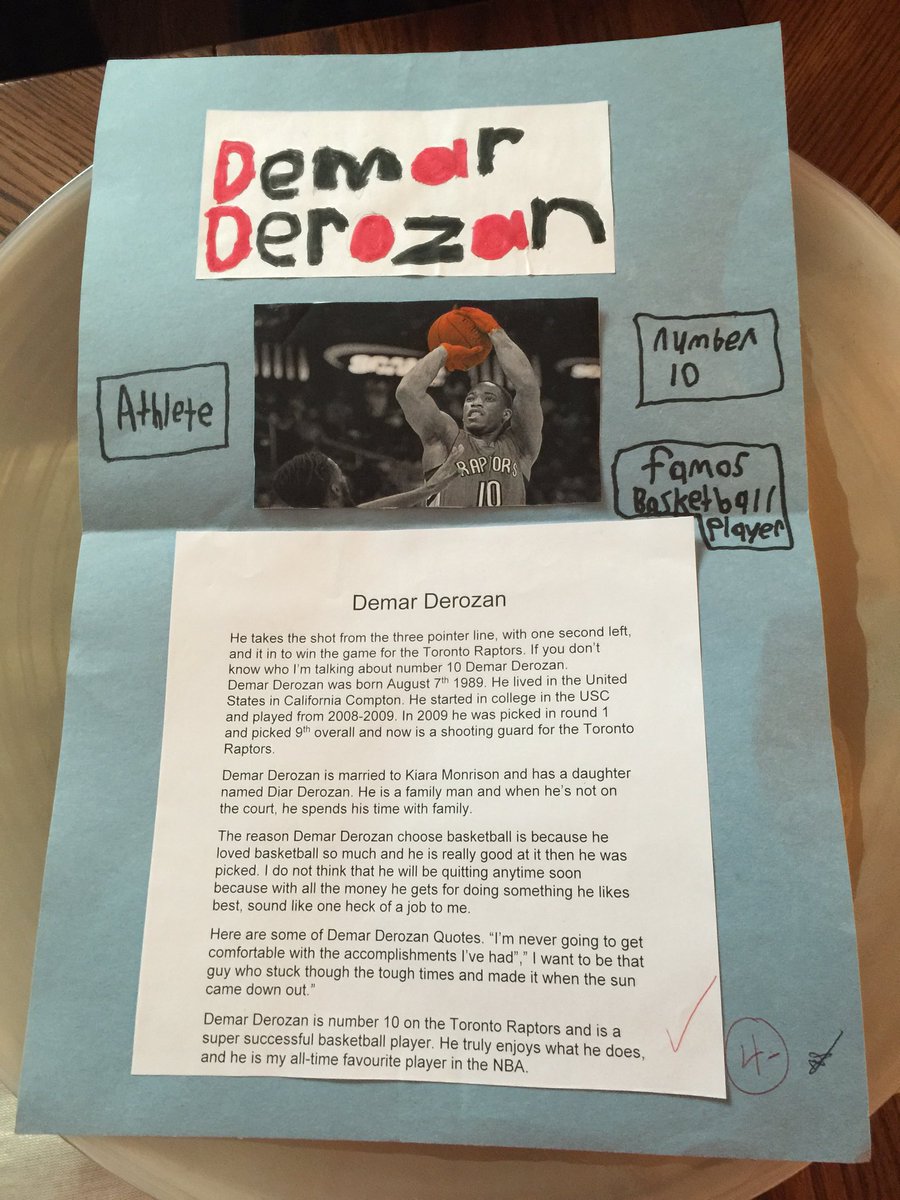 Demar
Derozan
Athlete
number
10
RAPTORS
10
famos
Basketball
Player
Demar Derozan
He takes the shot from the three pointer line, with one second left,
and it in to win the game for the Toronto Raptors. If you don't
know who I'm talking about number 10 Demar Derozan.
Demar Derozan was born August 7th 1989. He lived in the United
States in California Compton. He started in college in the USC
and played from 2008-2009. In 2009 he was picked in round 1
and picked 9th overall and now is a shooting guard for the Toronto
Raptors.
Demar Derozan is married to Kiara Monrison and has a daughter
named Diar Derozan. He is a family man and when he's not on
the court, he spends his time with family.
The reason Demar Derozan choose basketball is because he
loved basketball so much and he is really good at it then he was
picked. I do not think that he will be quitting anytime soon
because with all the money he gets for doing something he likes
best, sound like one heck of a job to me.
Here are some of Demar Derozan Quotes. “I'm never going to get
comfortable with the accomplishments I've had”,” I want to be that
guy who stuck though the tough times and made it when the sun
came down out.”
Demar Derozan is number 10 on the Toronto Raptors and is a
super successful basketball player. He truly enjoys what he does,
and he is my all-time favourite player in the NBA.
4-